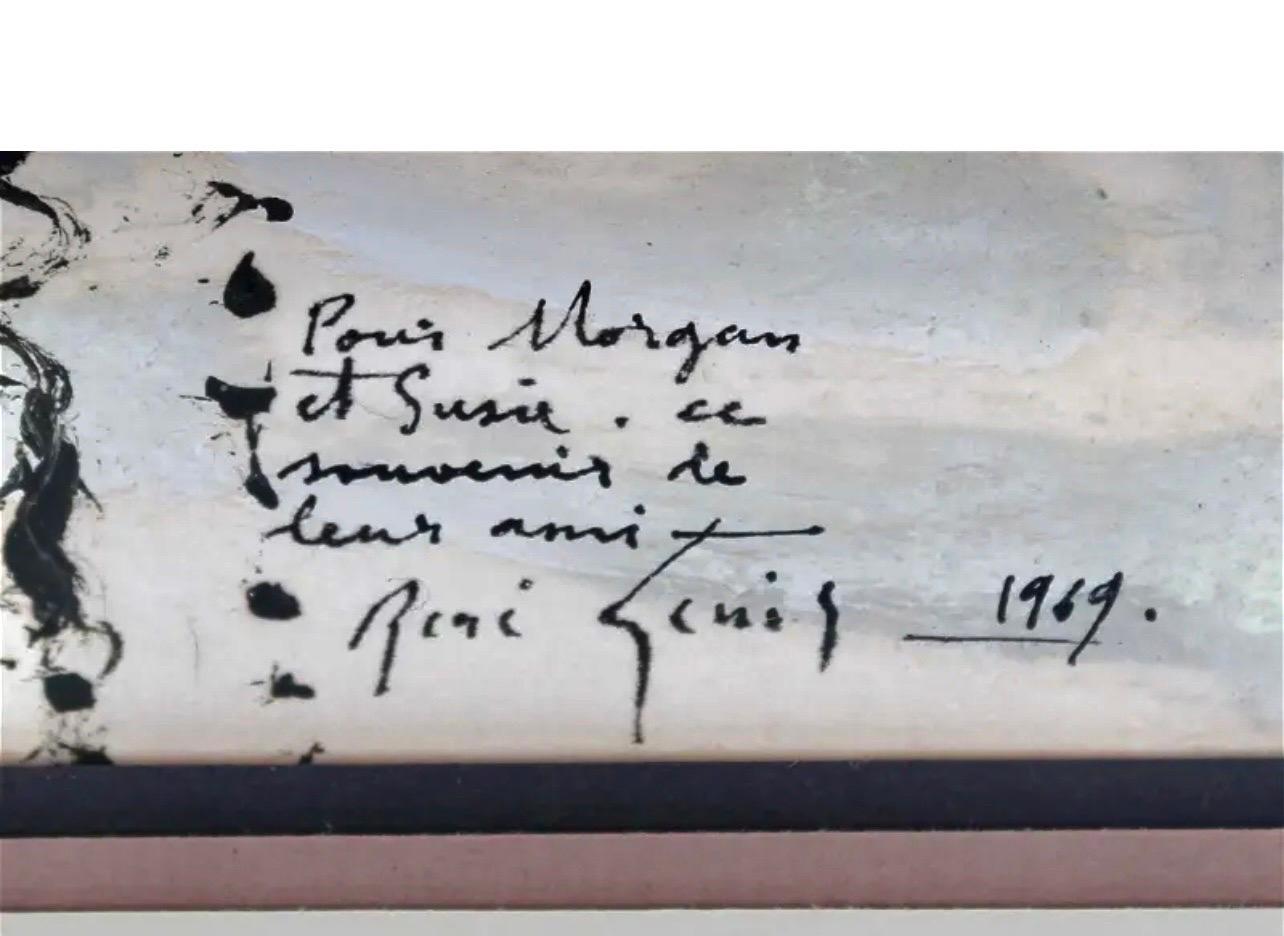 Pour Morgan
et Susie. ce
souvenir de
leur ami
René Genis 1969.